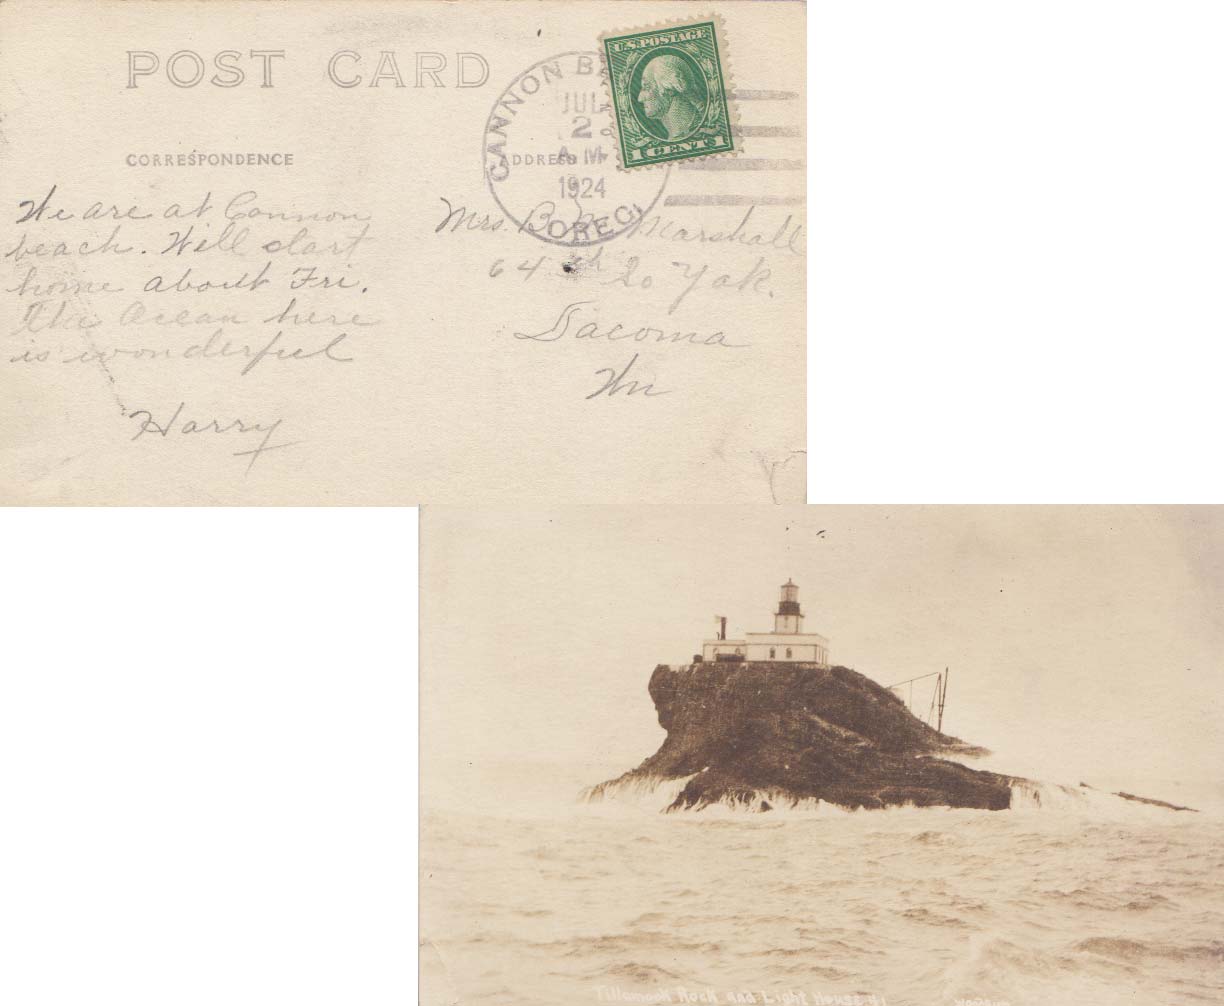 POST CARD
CORRESPONDENCE
ADDRESS
CANNON B
JUL
2
A.M.
1924
OREG.
U.S. POSTAGE
1 CENT 1
We are at Cannon
beach. Will start
home about Fri.
The Ocean here
is wonderful
Harry
Mrs. B. Marshall
64th So Yak.
Tacoma
Wn
Tillamook Rock and Light House #1